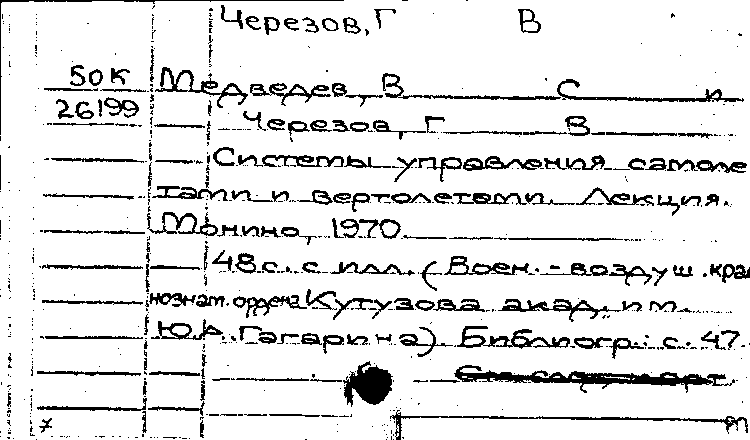 Черезов, Г В
50К Медведев, В С и
26199 Черезов, Г В
Системы управления самоле
тами и вертолетами. Лекция.
Монино, 1970.
48 с. с илл. (Воен.-воздуш. крас
нознам. ордена Кутузова акад. им.
Ю.А. Гагарина). Библиогр.: с. 47.